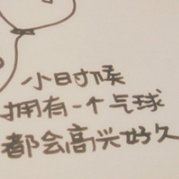 小时候
拥有一个气球
都会高兴好久